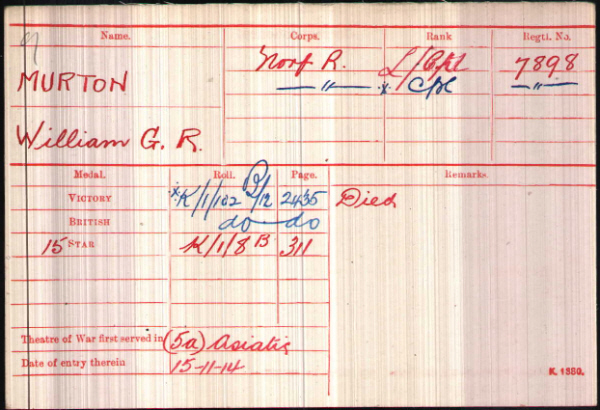 Name. Corps. Rank Regtl. No.
MURTON Norf R. L/Cpl 7898
—〃— * Cpl —〃—
William G. R.
Medal. Roll. Page. Remarks.
VICTORY *K/1/102 B/12 2435 Died
BRITISH do do
15 STAR K/1/8 B 311
Theatre of War first served in (5a) Asiatic
Date of entry therein 15-11-14
K. 1380.